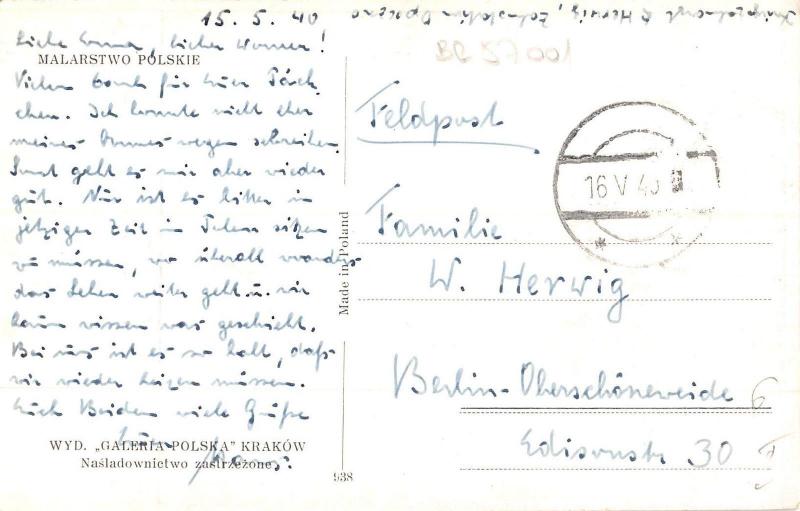 15. 5. 40
Liebe Emma, lieber Werner!
MALARSTWO POLSKIE
Vielen Dank für Euer Päck-
chen. Ich konnte nicht eher
meines Armes wegen schreiben.
Sonst geht es mir aber wieder
gut. Nur ist es bitter in
jetziger Zeit in Polen sitzen
zu müssen, wo überall woanders
das Leben weiter geht u. wir
kaum wissen was geschieht.
Bei uns ist es so kalt, daß
wir wieder heizen müssen.
Euch Beiden viele Grüße
Euer
WYD. „GALERIA POLSKA" KRAKÓW
Naśladownictwo zastrzeżone.
938
Made in Poland
Herwig,
BC 57001
Feldpost
16 V 40
Familie
W. Herwig
Berlin-Oberschöneweide
Edisonstr 30